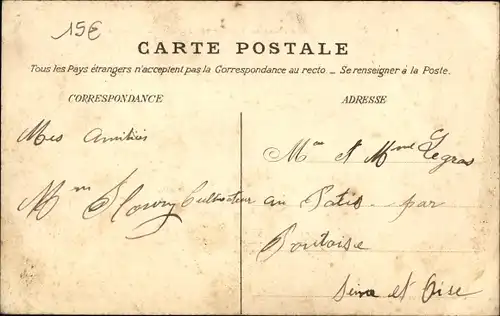 15E
CARTE POSTALE
Tous les Pays étrangers n'acceptent pas la Correspondance au recto _ Se renseigner à la Poste.
CORRESPONDANCE
ADRESSE
Mes Amitiés
et Mme Legras
Cultivateur au Patis par
Pontoise
Seine et Oise